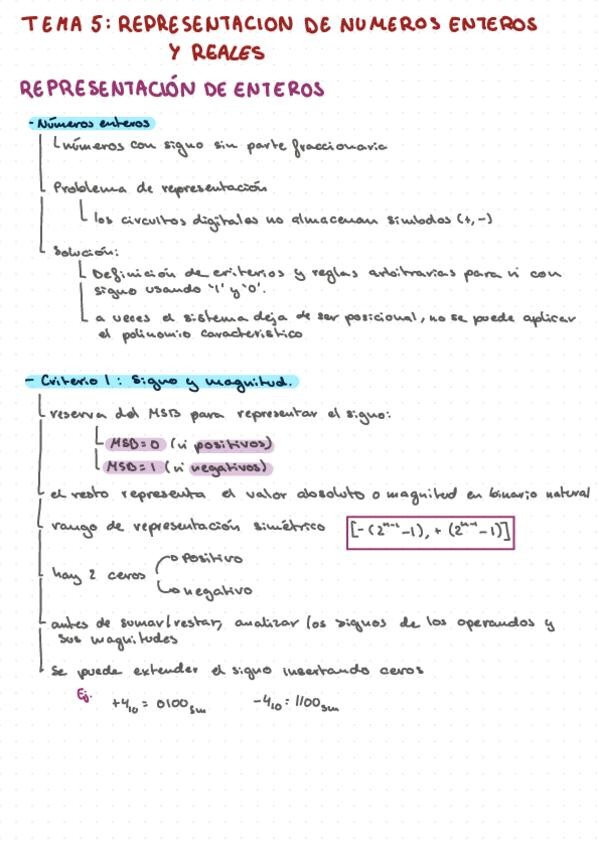 TEMA 5: REPRESENTACION DE NUMEROS ENTEROS
Y REALES
REPRESENTACIÓN DE ENTEROS
- Números enteros
números con signo sin parte fraccionaria
Problema de representación
los circuitos digitales no almacenan simbolos (+,-)
Solución:
Definición de criterios y reglas arbitrarias para nº con
signo usando '1' y '0'.
a veces el sistema deja de ser posicional, no se puede aplicar
el polinomio característico
- Criterio 1: Signo y magnitud.
reserva del MSB para representar el signo:
MSB=0 (nº positivos)
MSB=1 (nº negativos)
el resto representa el valor absoluto o magnitud en binario natural
rango de representación simétrico [-(2ⁿ⁻¹-1), +(2ⁿ⁻¹-1)]
hay 2 ceros
positivo
negativo
antes de sumar/restar, analizar los signos de los operandos y
sus magnitudes
Se puede extender el signo insertando ceros
Ej. +4₁₀ = 0100SM -4₁₀ = 1100SM